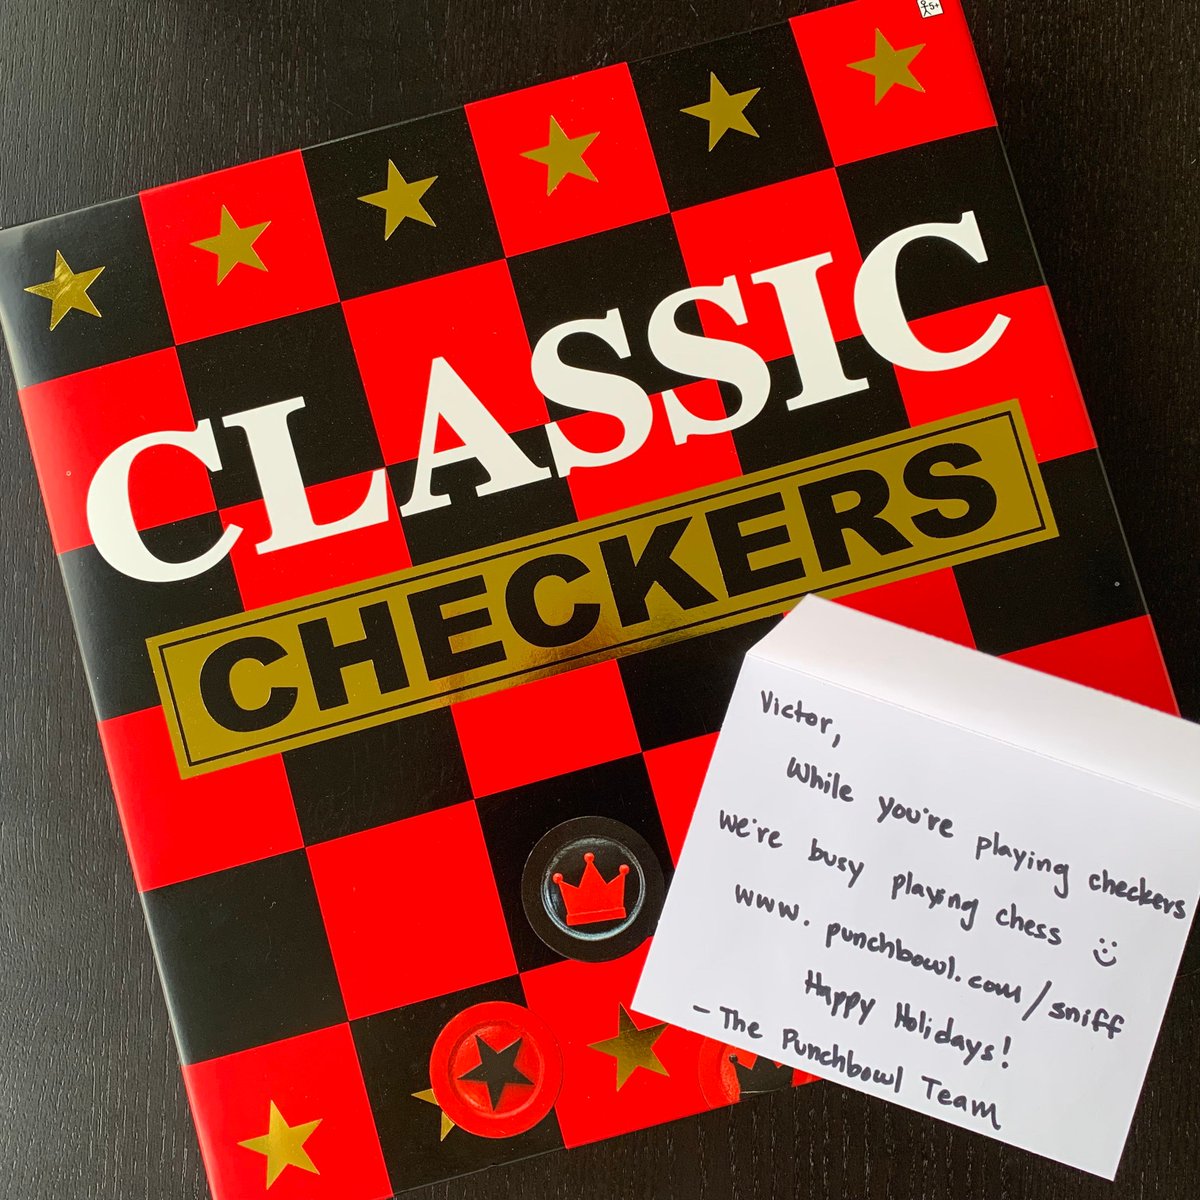 5+
CLASSIC
CHECKERS
Victor,
While you're playing checkers
we're busy playing chess
www.punchbowl.com/sniff
Happy Holidays!
- The Punchbowl Team